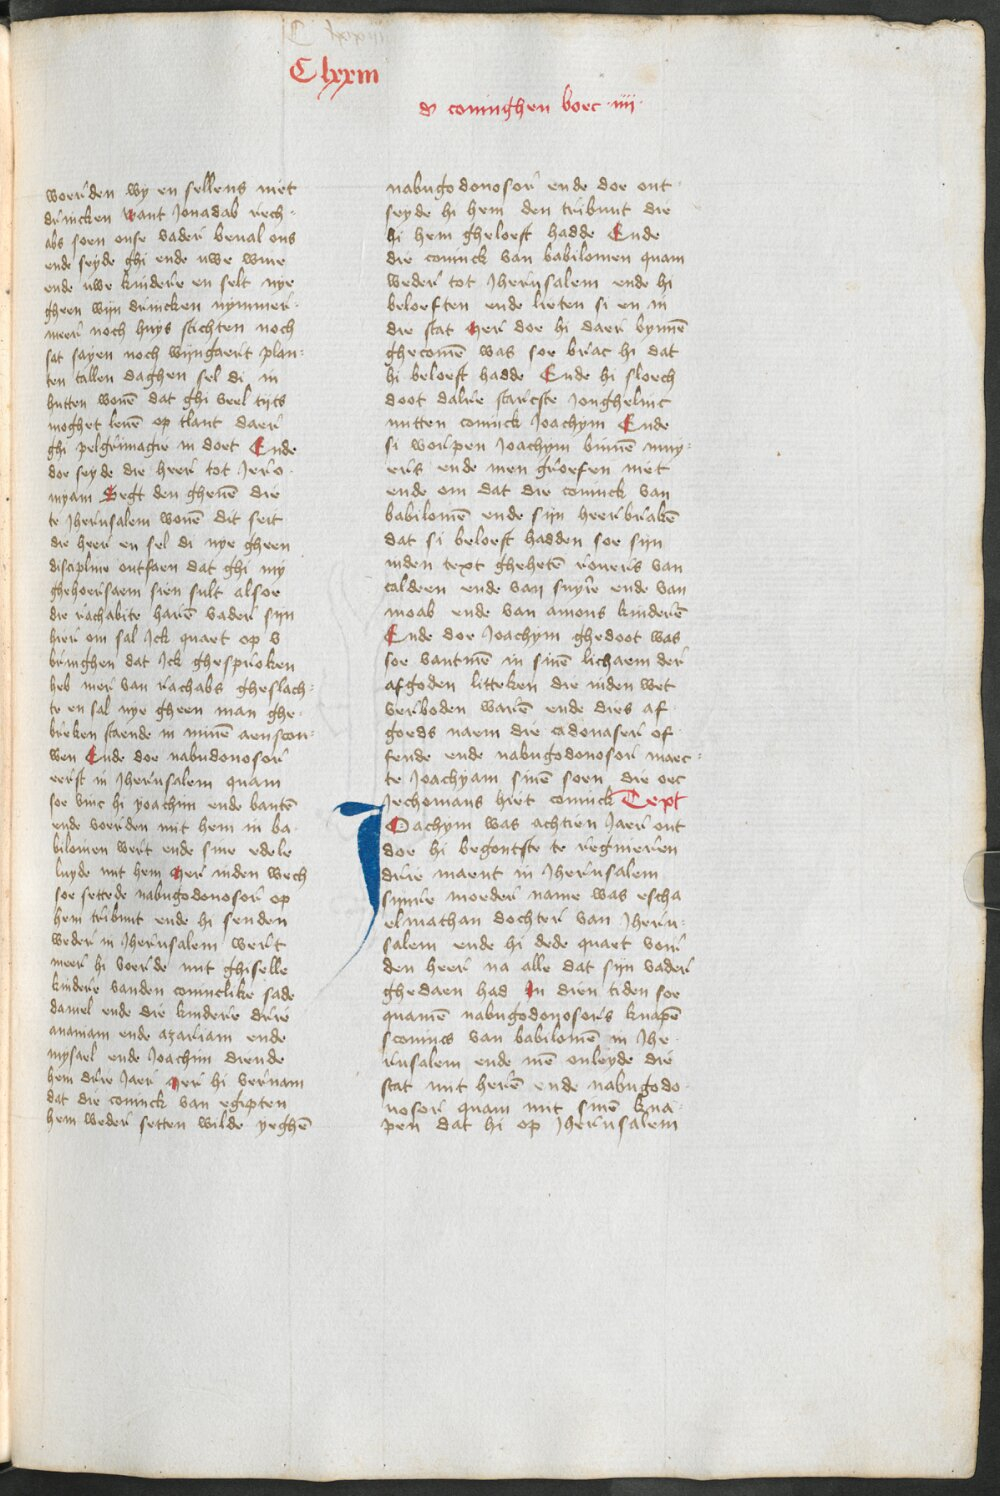 C lxxiii
d coninghen boec iiii
woerden wy en sellens niet
drincken want Jonadab rech-
abs soen onse vader beual ons
ende seyde ghi ende uwe wiue
ende uwe kindere en selt nye
gheen wijn drincken nymmer-
meer noch huys stichten noch
sat sayen noch wijngaert plan-
ten tallen daghen sel di in
hutten wonē dat ghi veel tijts
moghet leuē op tlant daer
ghi pelgrimagie in doet Ende
doe seyde die heer tot Jero
myam Segt den ghenē die
te Jherusalem wonē dit seit
die heer en sel di nye gheen
discipline ontfaen dat ghi my
ghehoersaem sien sult alsoe
die rachabite harē vader sijn
hier om sal Ick quaet op v
bringhen dat Ick ghesproken
heb mer van rachabs gheslach-
te en sal nye gheen man ghe
breken staende in minē aenscou-
wen Ende doe nabudonosor
eerst in Jherusalem quam
soe vinc hi yoachim ende bantē
ende voerden mit hem in ba
bilonien wert ende sine edele
luyde mit hem Mer inden wech
soe settede nabugodonosor op
hem tribuut ende hi senden
weder in Jherusalem wert
meer hi voerde mit ghiselle
kindere vanden coninclike sade
daniel ende die kindere drie
ananiam ende azariam ende
mysael ende Joachim diende
hem drie Jaer Mer hi vernam
dat die coninck van egipten
hem weder setten wilde yeghē
nabugodonosor ende doe ont
seyde hi hem den tribuut die
hi hem gheloeft hadde Ende
die coninck van babilonien quam
weder tot Jherusalem ende hi
beloeften ende lieten si en in
die stat Mer doe hi daer bynnē
ghecomē was soe brac hi dat
hi beloeft hadde Ende hi sloech
doot dalre starcste Jonghelinc
mitten coninck Joachym Ende
si worpen Joachym buten muy-
ers ende men groefen niet
ende om dat die coninck van
babilonē ende sijn heer brakē
dat si beloeft hadden soe sijn
inden text ghehetē rouers van
caldeen ende van suyre ende van
moab ende van amons kinderē
Ende doe Joachym ghedoot was
soe vantmē in sinē lichaem der
afgoden litteken die inden wet
verboden warē ende dies af
goeds naem die cadonaser of
fende ende nabugodonosor maec-
te Joachyam sinē soen die oec
Jechonias hiet coninck Text
IOachym was achtien Jaer out
doe hi begontste te regnieren
drie maent in Jherusalem
synre moeder name was escha
elmathan dochter van Jheru-
salem ende hi dede quaet voir
den heer na alle dat sijn vader
ghedaen had In dien tiden soe
quamē nabugodonosors knapē
sconincs van babilonē in Jhe
rusalem ende mē onleyde die
stat mit herē ende nabugodo
nosor quam mit sinē kna-
pen dat hi op Jherusalem